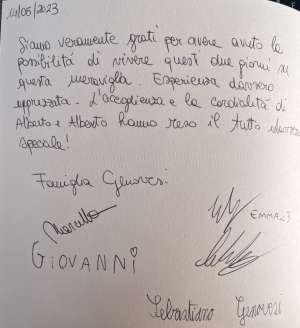 14/06/2023
Siamo veramente grati per avere avuto la
possibilità di vivere questi due giorni in
questa meraviglia. Esperienza davvero
apprezzata. L'accoglienza e la cordialità di
Alberto e Alberto hanno reso il tutto davvero
speciale!
Famiglia Genovesi
Marcello
EMMA
GIOVANNI
Sebastiano Genovesi